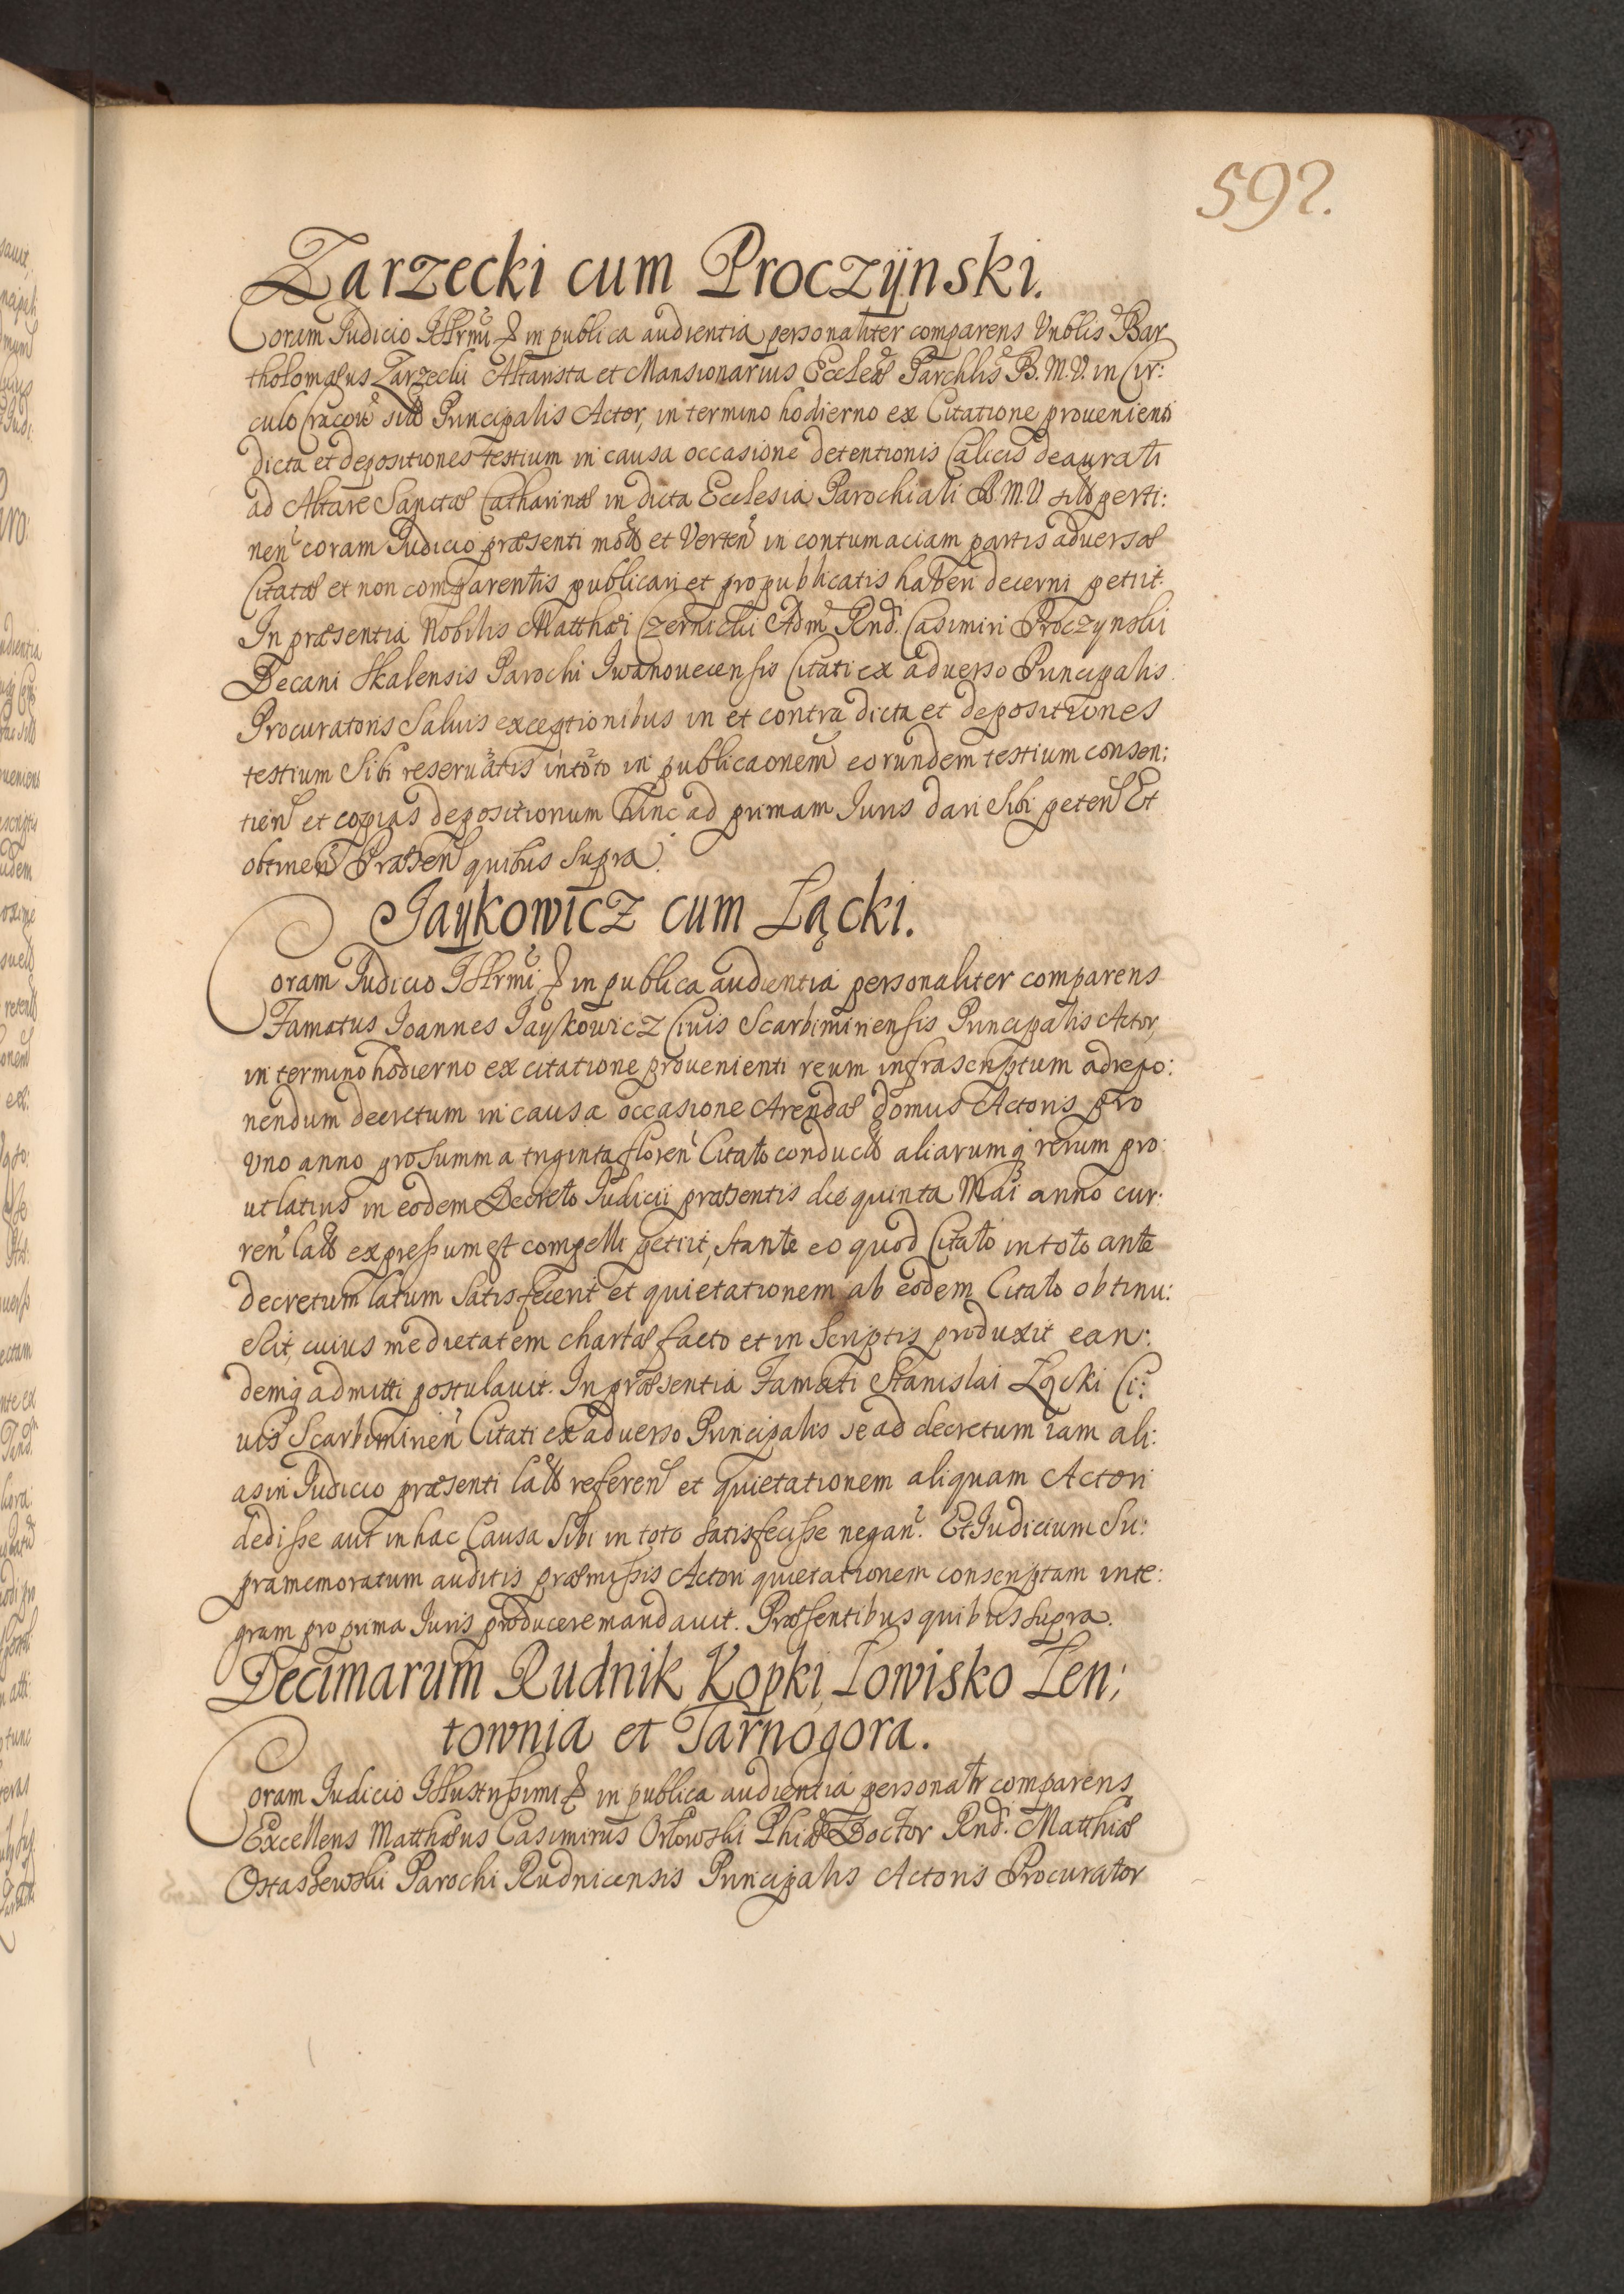 592.
Zarzecki cum Proczÿnski.
Coram Judicio Illrmi & in publica audientia personaliter comparens Vnblis Bar
tholomæus Zarzecki Altarista et Mansionarius Eccleæ Parchlis B. M. V. in Cir:
culo Cracoü Principalis Actor, in termino hodierno ex Citatione prouenienti
dicta et depositiones testium in causa occasione detentionis Calicis deaurati
ad Altare Sanctæ Catharinæ in dicta Ecclesia Parochiali B. M. V perti:
nen coram Judicio præsenti et Verten in contumaciam partis aduersæ
Citatæ et non comparentis publicari et pro publicatis haberi decerni petiit.
In præsentia Nobilis Matthæi Czernicki Adm Rnd. Casimiri Proczynski
Decani Skalensis Parochi Iwanouecensis Citati ex aduerso Principalis
Procuratoris Saluis exceptionibus in et contra dicta et depositiones
testium Sibi reseruatis in toto in publicaonem eorundem testium consen:
tien et copias depositionum hinc ad primam Iuris dari Sibi peten Et
obtinen Præsen quibus Supra.
Jaÿkowicz cum Łącki.
Coram Judicio Illrmi & in publica audientia personaliter comparens
Famatus Joannes Jaykowicz Ciuis Scarbimiriensis Principalis Actor,
in termino hodierno ex citatione prouenienti reum infrascriptum ad repo:
nendum decretum in causa occasione Arendæ domus Actoris pro
Vno anno pro Summa triginta floren Citato conduct aliarumq rerum pro
ut latius in eodem Decreto Judicii præsentis die quinta Mai anno cur:
ren lat expressum est compelli petiit, Stante eo quod Citato in toto ante
decretum latum Satisfecerit et quietationem ab eodem Citato obtinu:
erit, cuius medietatem chartæ facto et in Scriptis produxit ean:
demq admitti postulauit. In præsentia Famati Stanislai Łącki Ci:
uis Scarbimirien Citati ex aduerso Principalis se ad decretum iam ali:
as in Judicio præsenti lat referen et quietationem aliquam Actori
dedisse aut in hac Causa Sibi in toto Satisfecisse negan. Et Judicium Su:
pramemoratum auditis præmissis Actori quietationem conscriptam inte:
gram pro prima Iuris producere mandauit. Præsentibus quibus Supra.
Decimarum Rudnik, Kopki, Łowisko Łen:
townia et Tarnogora.
Coram Judicio Illustrissimi & in publica audientia personalr comparens
Excellens Matthæus Casimirus Orłowski Phiæ Doctor Rnd. Matthiæ
Ostaszewski Parochi Rudnicensis Principalis Actoris Procurator